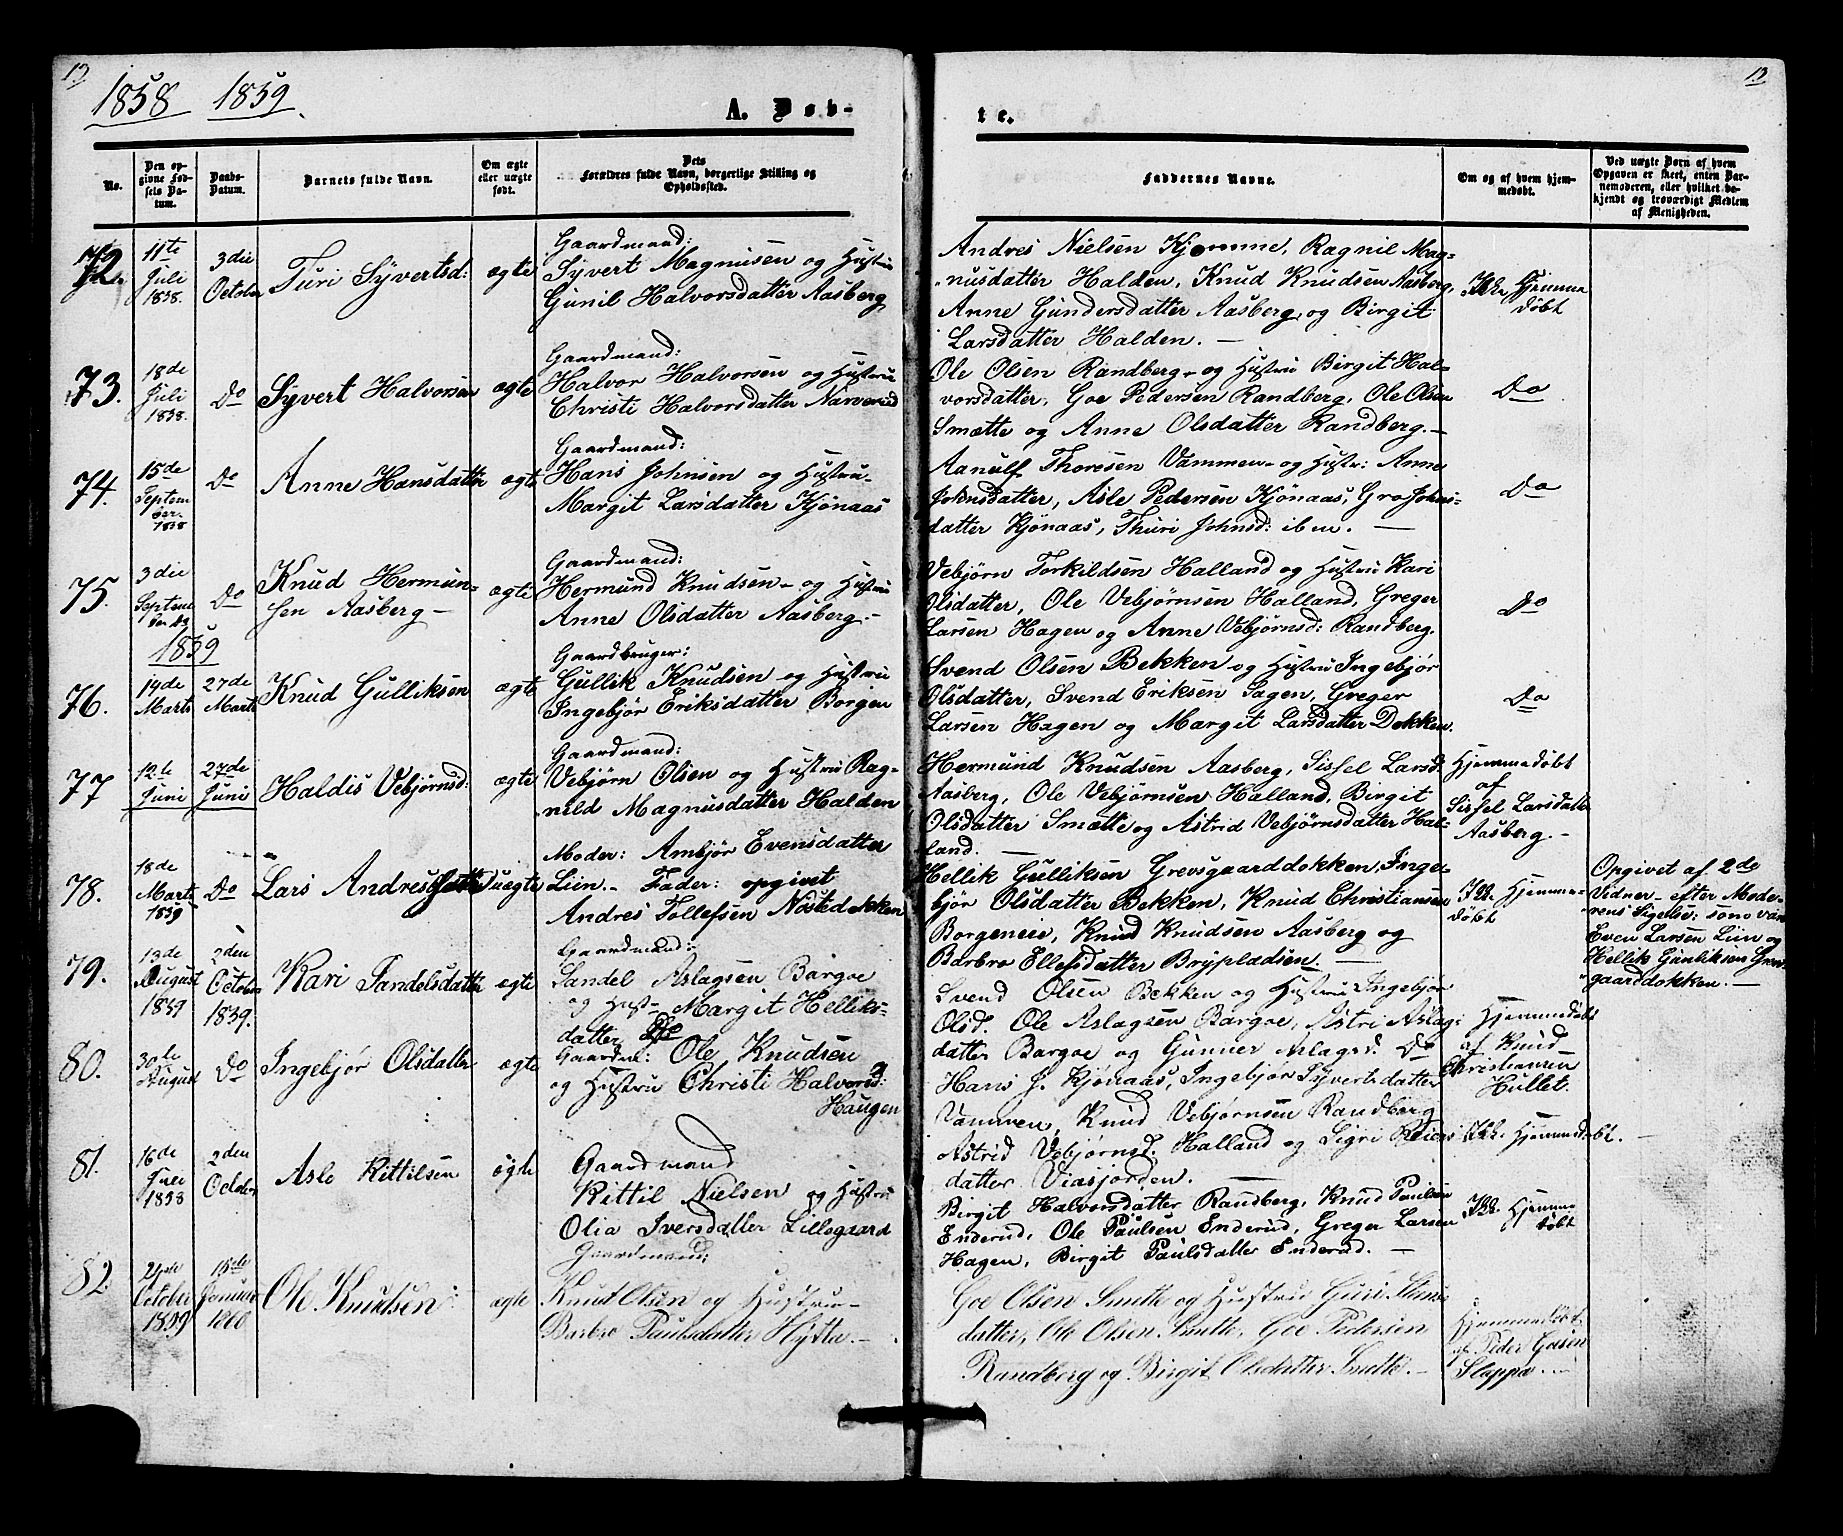 13
1858 1859.
A. Døb-
te.
13
No.
Den op-
givne Fød-
sels Da-
tum.
Daabs-
Datum.
Barnets fulde Navn.
Om ægte
eller uægte
født.
Dets
Forældres fulde Navn, borgerlige Stilling og
Opholdssted.
Faddernes Navne.
Om og af hvem hjem-
medøbt.
Ved uægte Børn af hvem
Opgaven er skeet, enten Bar-
nemoderen, eller hvilket be-
kjendt og troværdigt Medlem
af Menigheden.
72.
11te
Juli
1858.
3die
October
Turi Syvertsd:
ægte
Gaardmand:
Syvert Magnusen og Hustru
Gunil Halvorsdatter Aasberg
Andres Nielsen Kjømme, Ragnil Mag-
nusdatter Halden, Knud Knudsen Aasberg,
Anne Gundersdatter Aasberg, og Birgit
Larsdatter Halden. —
Ikke Hjemme
døbt
73.
18de
Juli
1858.
Do
Syvert Halvorsen
ægte
Gaardmand:
Halvor Halvorsen og Hustru
Christi Halvorsdatter Narverud
Ole Olsen Randberg, og Hustru Birgit Hal-
vorsdatter, Goe Pedersen Randberg, Ole Olsen
Smætte og Anne Olsdatter Randberg. —
Do
74.
15de
Septem
ber.
1858
Do
Anne Hansdatter
ægte
Gaardmand:
Hans Johnsen og Hustru
Margit Larsdatter Kjönaas
Aanulf Thoresen Vammen og Hustr: Anne
Johnsdatter, Asle Pedersen Kjönaas, Gro Johns-
datter Kjönaas, Thuri Johnsd: iben. —
Do
75.
3die
Septem
ber
Do
Knud Hermun-
sen Aasberg —
ægte
Gaardmand:
Hermund Knudsen og Hustru
Anne Olsdatter Aasberg. —
Vebjørn Torkildsen Halland og Hustru Kari
Olsdatter, Ole Vebjørnsen Halland, Greger
Larsen Hagen og Anne Vebjørnsd: Randberg.
Do
1859
76.
14de
Marts
27de
Marts
Knud Gulliksen
ægte
Gaardbruger:
Gullik Knudsen og Hustru
Ingebjør Eriksdatter Borgen
Svend Olsen Bekken og Hustru Ingebjør
Olsdatter, Svend Eriksen Sagen, Greger
Larsen Hagen og Margit Larsdatter Dokken.
Do
77
12te
Juni
27de
Juni
Haldis Vebjørnsd:
ægte
Gaardmand:
Vebjørn Olsen og Hustru Rag-
nild Magnusdatter Halden
Hermund Knudsen Aasberg, Sissel Larsd.
Aasberg, Ole Vebjørnsen Halland, Birgit
Olsdatter Smætte og Astrid Vebjørnsdatter Hal-
land. —
Hjemmedøbt
af
Sissel Larsdatter
Aasberg. —
78.
18de
Marts
1859
Do
Lars Andres
uægte
Moder: Ambjør Evensdatter
Liin. Fader: opgivet
Andres Tollefsen Nøstedokken
Hellik Gulliksen Grevsgaarddokken, Inge-
bjør Olsdatter Bekken, Knud Christiansen
Borgeneie, Knud Knudsen Aasberg og
Barbro Ellefsdatter
Ikk. Hjemme-
døbt
Opgivet af 2de
Vidner efter Mode-
rens Sigelse: som var
Even Larsen Liin og
Hellik Gunliksen Grevs-
gaarddokken. —
79.
13de
August
1859
2den
October
1859.
Kari Sandelsdatter
ægte
Gaardmand:
Sandel Aslagsen Bargoe
og Hust. Margit Helliks-
datter
Svend Olsen Bekken og Hustru Ingebjør
Olsd. Ole Aslagsen Bargoe, Astri Aslag-
datter Bargoe og Gunner Aslagsd. Do
Hjemmedøbt
af Knud
Christiansen
Hullet.
80.
30te
August
Do
Ingebjør Olsdatter
ægte
Gaardm.: Ole Knudsen
og Hustru Christi Halvorsd:
Haugen
Hans J. Kjønaas, Ingebjør Syvertsdatter
Vammen, Knud Vebjørnsen Randberg
Astrid Vebjørnsd. Halland og Sigri
datter Viasjorden. —
Ikk. Hjemmedøbt. —
81.
16de
Juli
1858
2den
October
Asle Kittilsen
ägte
Gaardmand
Kittil Nielsen og Hustru
Olia Iversdatter Lillegaard
Birgit Halvorsdatter Randberg, Knud Paulsen
Enderud, Ole Paulsen Enderud, Greger Larsen
Hagen, Birgit Paulsdatter Enderud. —
Ikk. Hjemme
døbt
82.
October
1859
Januar
1860
Ole Knudsen
ægte
Gaardmand:
Knud Olsen og Hustru
Barbro Paulsdatter Hytta. —
Goe Olsen Smette og Hustru Guri
datter, Ole Olsen Smette, Goe Pedersen
Randberg og Birgit Olsdatter Smette. —
Hjemmedøbt
af Peder Goesen
Slappa